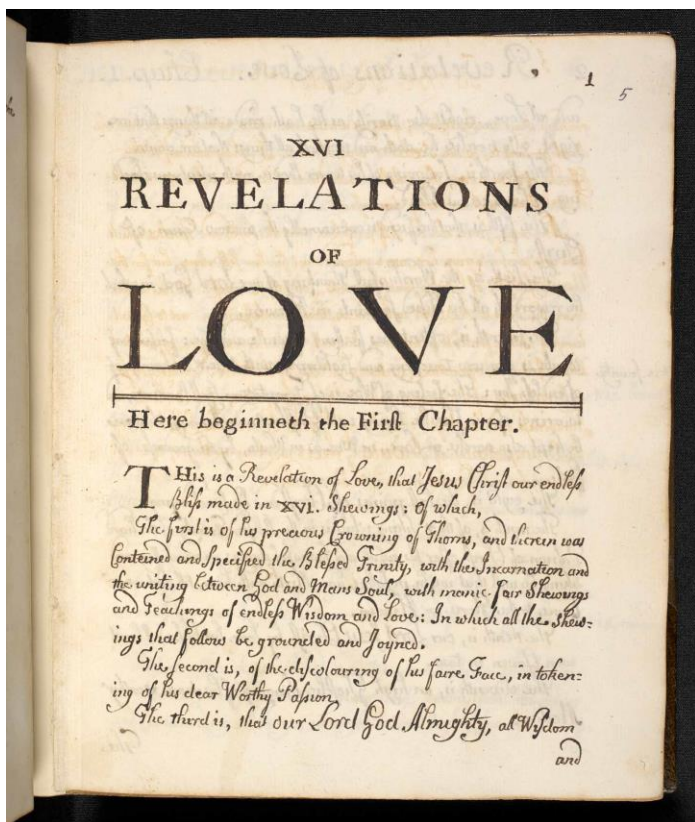 1
5
XVI
REVELATIONS
OF
LOVE
Here beginneth the First Chapter.
THis is a Revelation of Love, that Jesus Christ our endless
Bliss made in XVI. Shewings: Of which,
The first is of his precious Crowning of Thorns, and therein was
Conteined and specified the Blessed Trinity, with the Incarnation and
the uniting between God and Mans Soul, with manie fair Shewings
and Teachings of endless Wisdom and Love: In which all the Shew:
ings that follow be grounded and Joyned.
The second is, of the discolouring of his faire Face, in token:
ing of his dear Worthy Passion
The therd is, that our Lord God Almighty, all Wisdom
and